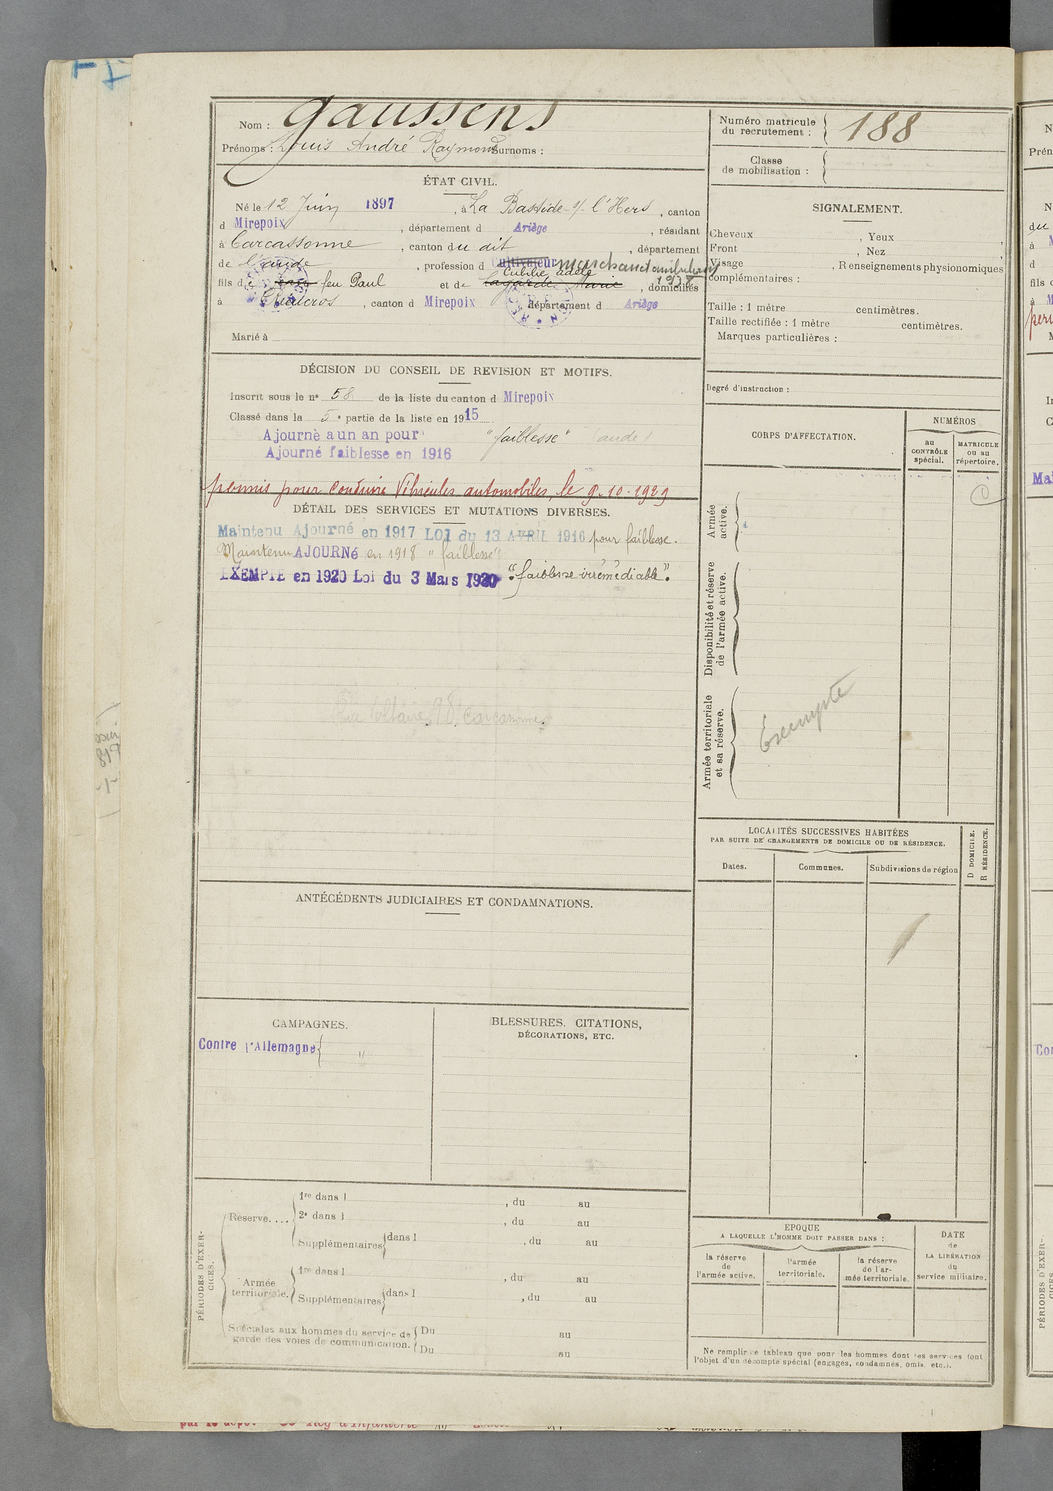 Nom : Gaussens
Prénoms : Louis André Raymond Surnoms :
Numéro matricule
du recrutement : 188
Classe
de mobilisation :
ÉTAT CIVIL.
Né le 12 Juin 1897, à La Bastide s/ l'Hers, canton
d Mirepoix, département d Ariège, résidant
à Carcassonne, canton du dit, département
de l'aude, profession d Cultivateur marchand ambulant
1927
Eulalie adèle
fils d feu Paul et de Lagarde Marie, domiciliés
à, canton d Mirepoix département d Ariège
Marié à
SIGNALEMENT.
Cheveux, Yeux,
Front, Nez,
Visage, Renseignements physionomiques
complémentaires :
Taille : 1 mètre centimètres.
Taille rectifiée : 1 mètre centimètres.
Marques particulières :
Degré d'instruction :
DÉCISION DU CONSEIL DE REVISION ET MOTIFS.
Inscrit sous le n° 58 de la liste du canton d Mirepoix
Classé dans la 5e partie de la liste en 1915
Ajourné a un an pour "faiblesse" (aude)
Ajourné faiblesse en 1916
permis pour conduire Véhicules automobiles, le 9-10-1929
DÉTAIL DES SERVICES ET MUTATIONS DIVERSES.
Maintenu Ajourné en 1917 LOI du 13 AVRIL 1916 pour faiblesse.
Maintenu AJOURNé en 1918 "faiblesse"
EXEMPTE en 1920 Loi du 3 Mars 1920 "faiblesse irrémédiable".
CORPS D'AFFECTATION.
NUMÉROS
au
CONTRÔLE
spécial.
MATRICULE
ou au
répertoire.
Armée
active.
Disponibilité et réserve
de l'armée active.
Armée territoriale
et sa réserve.
Exempté
LOCALITÉS SUCCESSIVES HABITÉES
PAR SUITE DE CHANGEMENTS DE DOMICILE OU DE RÉSIDENCE.
Dates.
Communes.
Subdivisions de région
D DOMICILE.
R RÉSIDENCE.
ANTÉCÉDENTS JUDICIAIRES ET CONDAMNATIONS.
CAMPAGNES.
Contre l'Allemagne { "
BLESSURES, CITATIONS,
DÉCORATIONS, ETC.
PÉRIODES D'EXERCICES.
Réserve....
1re dans l, du au
2e dans l, du au
Supplémentaires {dans l, du au
Armée
territoriale.
1re dans l, du au
Supplémentaires {dans l, du au
Spéciales aux hommes du service de
garde des voies de communication.
Du au
Du au
EPOQUE
A LAQUELLE L'HOMME DOIT PASSER DANS :
la réserve
de
l'armée active.
l'armée
territoriale.
la réserve
de l'ar-
mée territoriale.
DATE
de
LA LIBÉRATION
du
service militaire.
Ne remplir ce tableau que pour les hommes dont les services font
l'objet d'un décompte spécial (engagés, condamnés, omis, etc.).